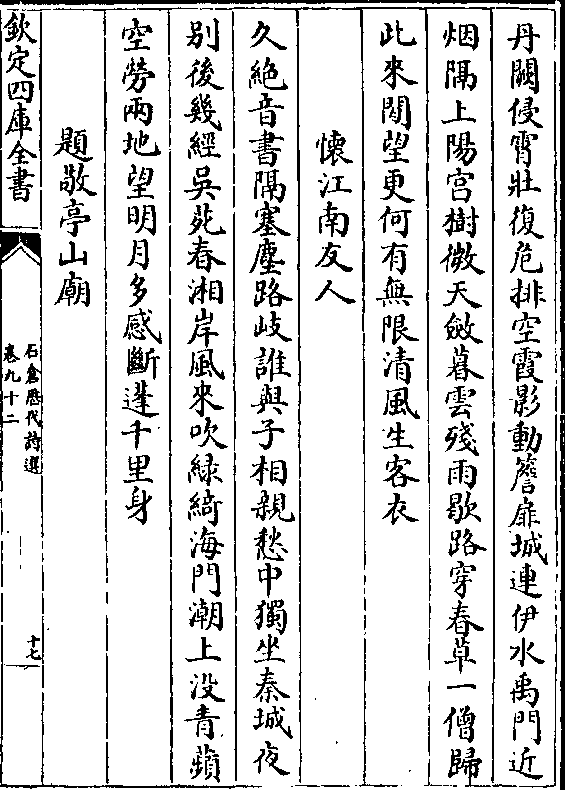 丹闕侵霄壯復危排空霞影動簷扉城連伊水禹門近
烟隔上陽宫樹微天斂暮雲殘雨歇路穿春草一僧歸
此來閒望更何有無限清風生客衣
懷江南友人
久絶音書隔塞塵路岐誰與子相親愁中獨坐秦城夜
别後幾經吳苑春湘岸風來吹緑綺海門潮上没青蘋
空勞兩地望明月多感斷蓬千里身
題敬亭山廟
欽定四庫全書
石倉歴代詩選
卷九十二
十七